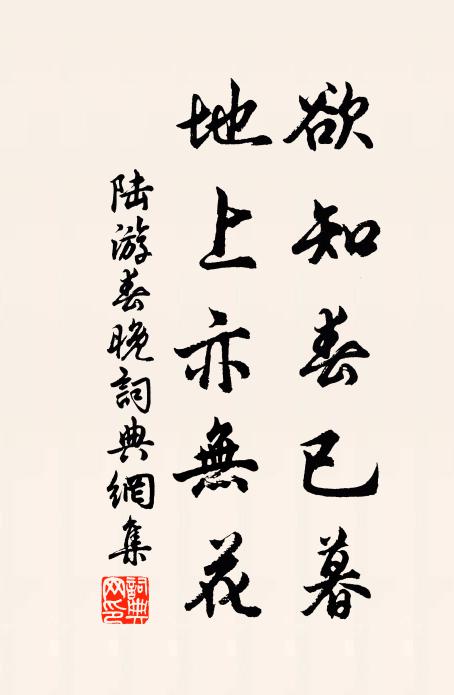 欲知春已暮
地上亦無花
陆游春晚詞典網集
詞典網印